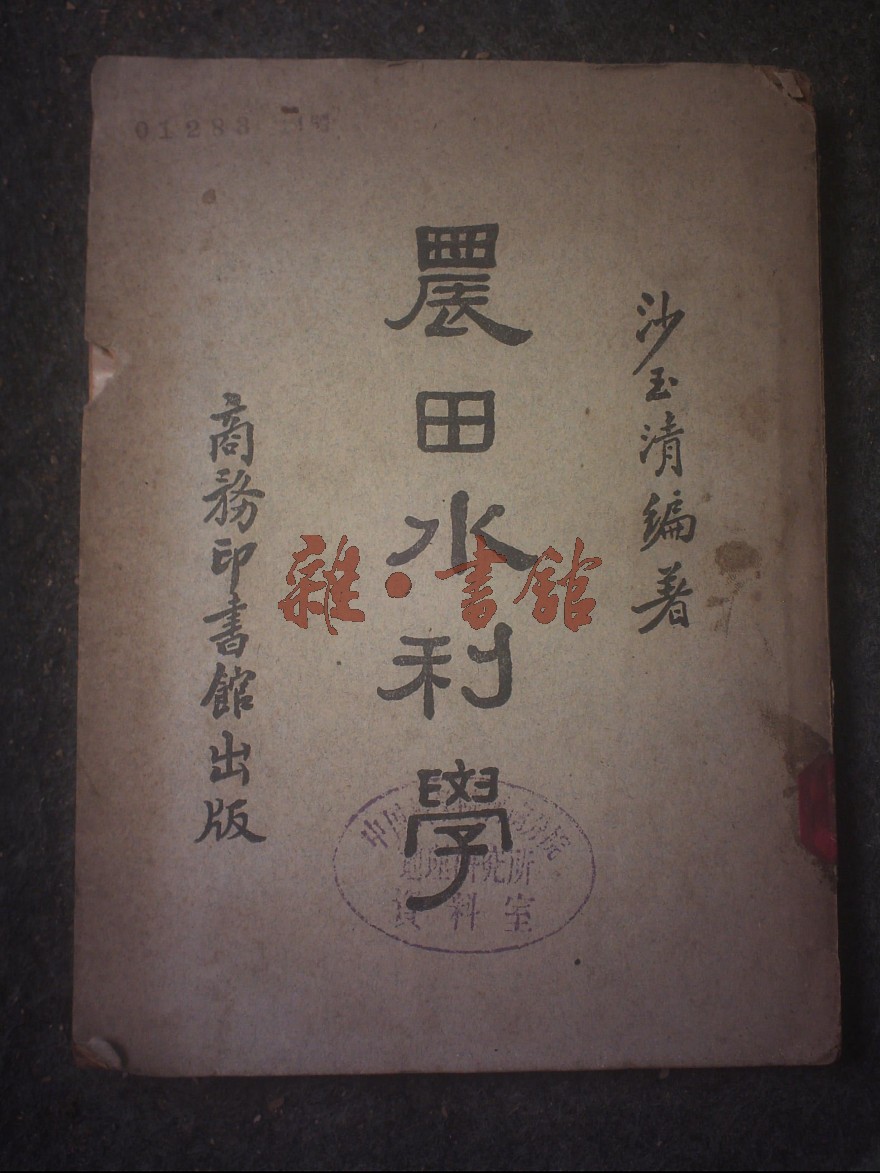 01283
沙玉清編著
農田水利學
商務印書館出版
雜·書館
中国
地理研究所
資料室